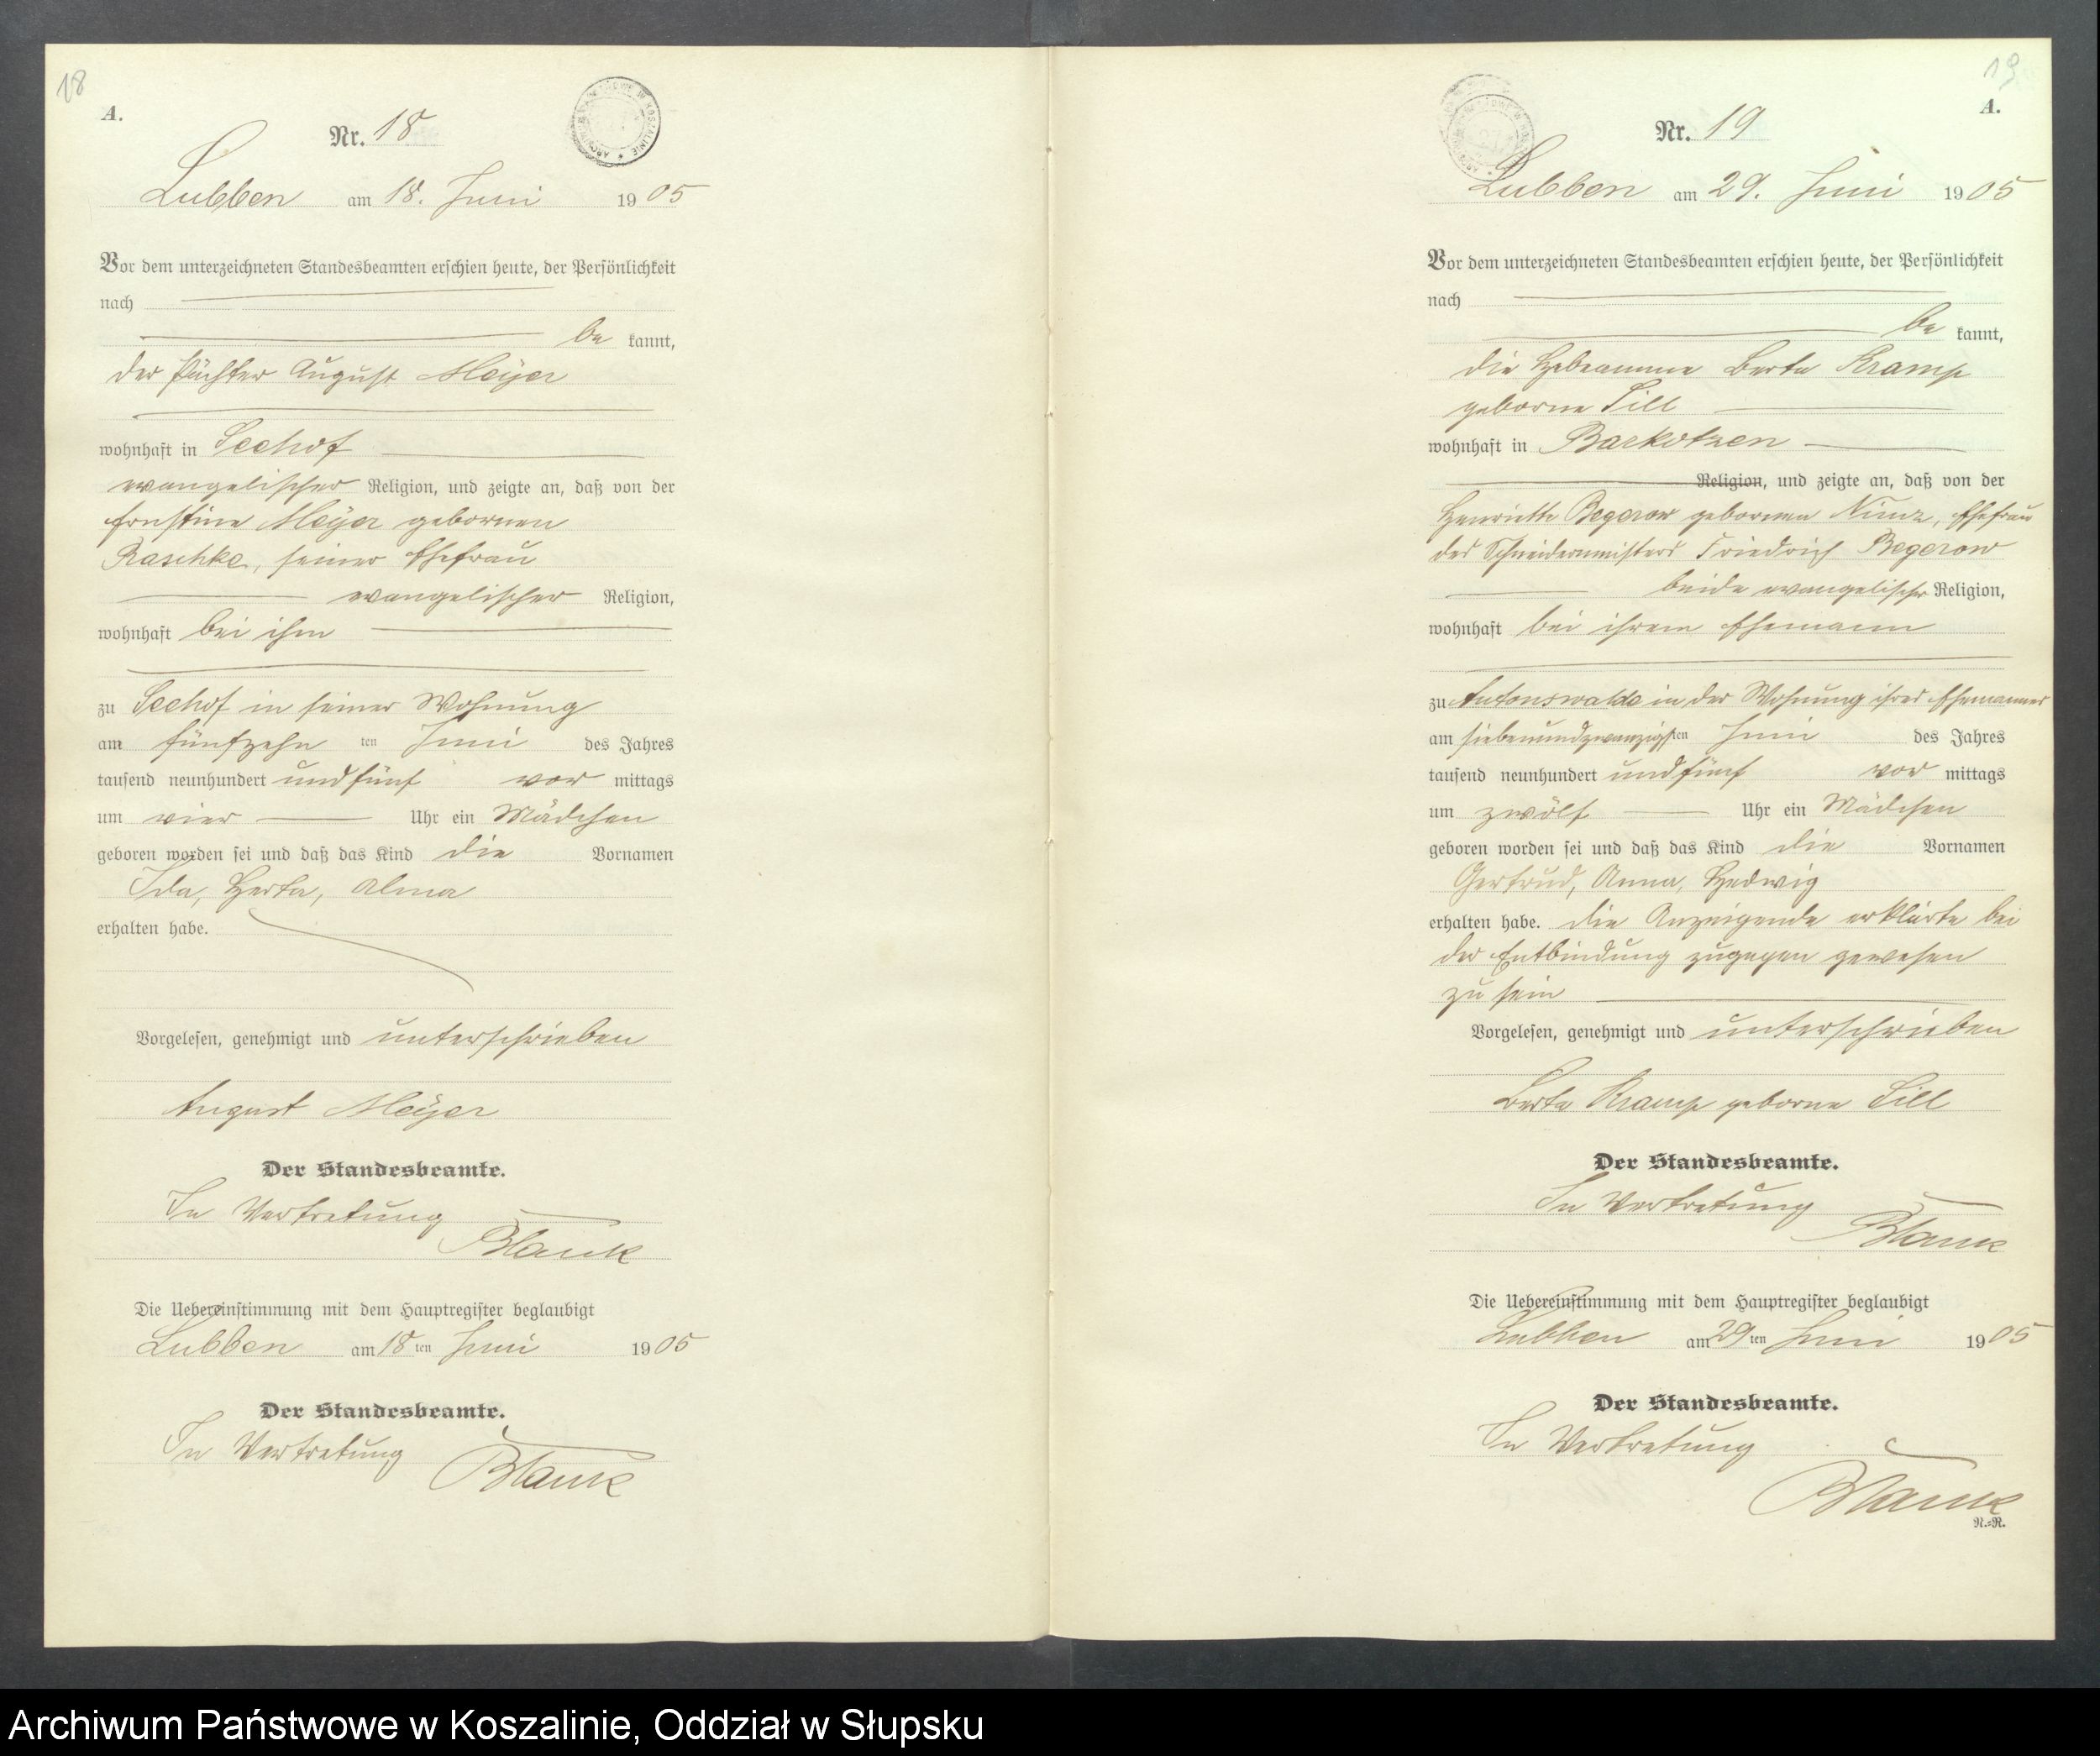 18
A.
Nr. 18
Lubben am 18. Juni 1905
Vor dem unterzeichneten Standesbeamten erschien heute, der Persönlichkeit
nach
be kannt,
der Pächter August Meÿer
wohnhaft in Seehof
evangelischer Religion, und zeigte an, daß von der
Ernstine Meÿer gebornen
Raschke, seiner Ehefrau
evangelischer Religion,
wohnhaft bei ihm
zu Seehof in seiner Wohnung
am fünfzehn ten Juni des Jahres
tausend neunhundert und fünf vor mittags
um vier Uhr ein Mädchen
geboren worden sei und daß das Kind die Vornamen
Ida, Herta, Alma
erhalten habe.
Vorgelesen, genehmigt und unterschrieben
August Meÿer
Der Standesbeamte.
In Vertretung
Blank
Die Uebereinstimmung mit dem Hauptregister beglaubigt
Lubben am 18 ten Juni 1905
Der Standesbeamte.
In Vertretung
Blank
19
A.
Nr. 19
Lubben am 29. Juni 1905
Vor dem unterzeichneten Standesbeamten erschien heute, der Persönlichkeit
nach
be kannt,
die Hebeamme Berta Kramp
geborne Sill
wohnhaft in Barkotzen
Religion, und zeigte an, daß von der
Henriette Begerow gebornen Nimz, Ehefrau
des Schneidermeisters Friedrich Begerow
beide evangelischer Religion,
wohnhaft bei ihrem Ehemann
zu Antonswalde in der Wohnung ihres Ehemannes
am siebenundzwanzigsten Juni des Jahres
tausend neunhundert und fünf vor mittags
um zwölf Uhr ein Mädchen
geboren worden sei und daß das Kind die Vornamen
Gertrud, Anna, Hedwig
erhalten habe. Die Anzeigende erklärte bei
der Entbindung zugegen gewesen
zu sein
Vorgelesen, genehmigt und unterschrieben
Berta Kramp geborne Sill
Der Standesbeamte.
In Vertretung
Blank
Die Uebereinstimmung mit dem Hauptregister beglaubigt
Lubben am 29 ten Juni 1905
Der Standesbeamte.
In Vertretung
Blank
R.=R.
Archiwum Państwowe w Koszalinie, Oddział w Słupsku